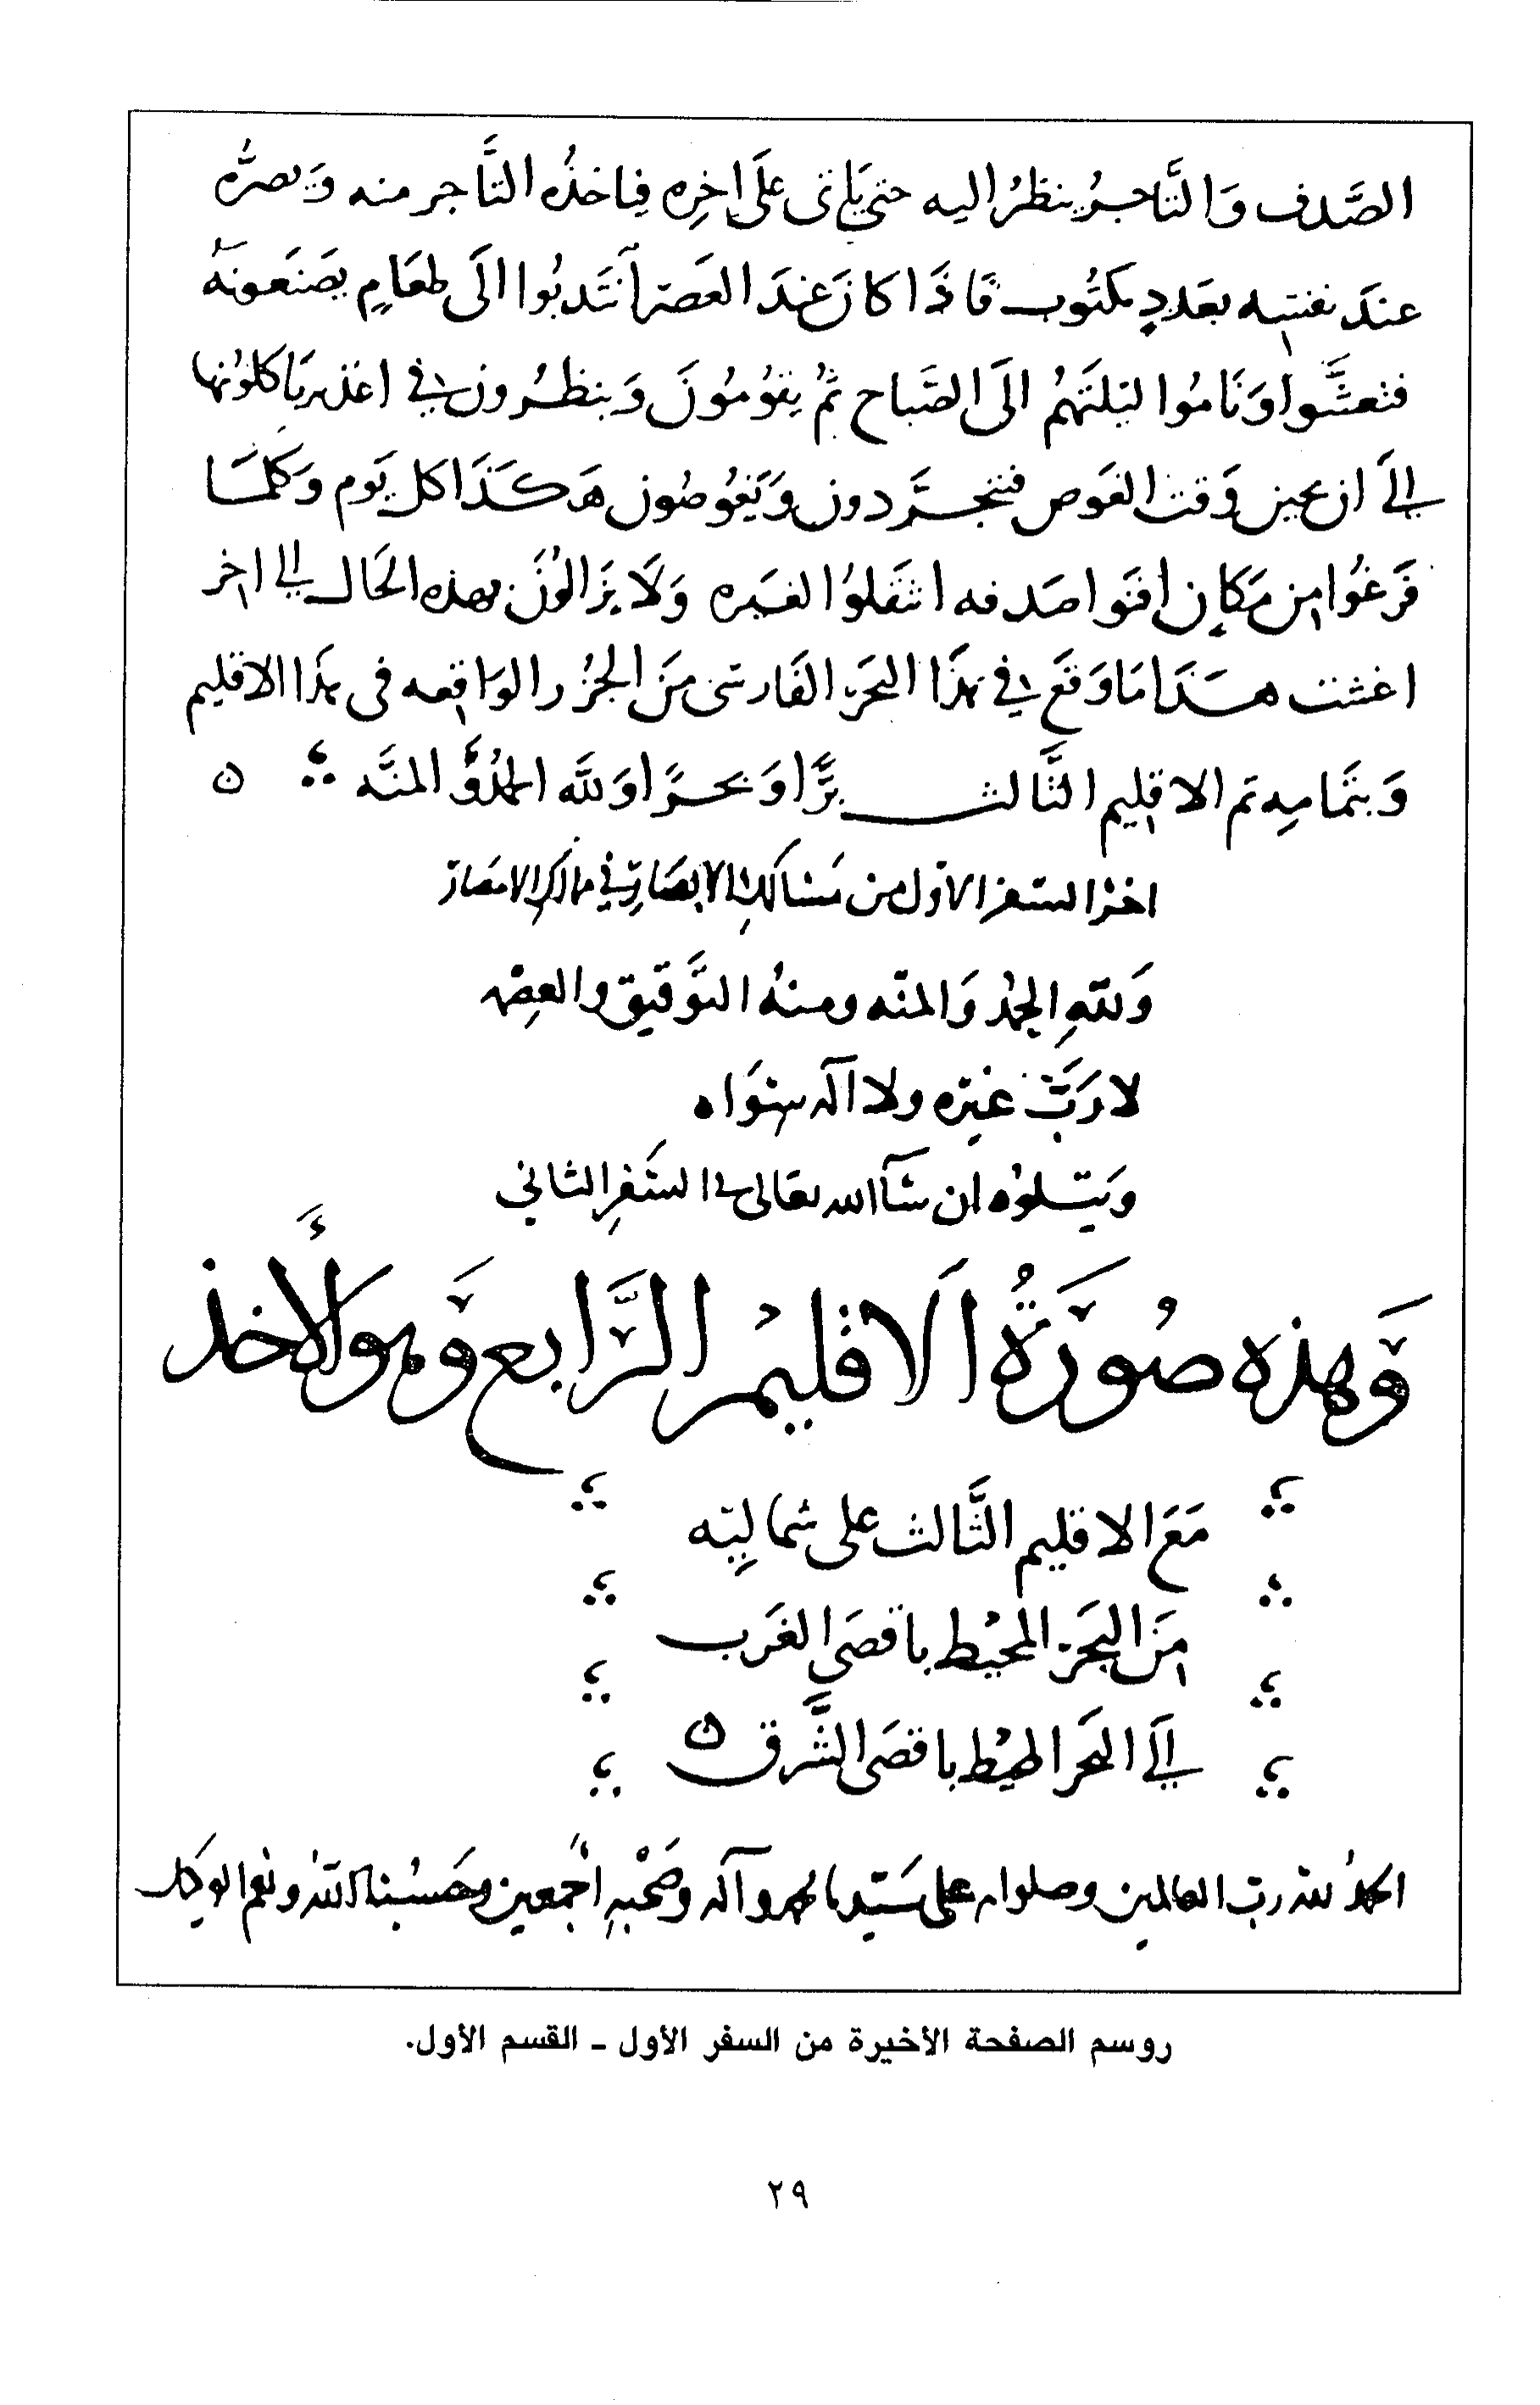 الصَّدف وَالتَّاجرُ ينظرُ اليه حتى يَاتى عَلَى اخِره فياخذُه التَّاجر منه وَيصرُّه
عندَ نفسه بعددٍ مكتُوب فَاذَا كانَ عندَ العَصر انتَدبُوا الَى طعَامٍ يصنَعونَهُ
فتعشَّوا وَنَامُوا ليلتَهُم الَى الصَّباح ثمُ يقوُمُونَ وَينظرُون في اغذية يَاكلوُنها
الَى ان يحين وَقت الغَوص فيتجرَّدون وَيَغوُصُون هَكَذَا كل يَوم وَكلمَا
فَرغُوا من مَكانٍ افنَوا صَدفه انتَقلوُا لغَيره وَلَا يزَالوُنَ بهذه الحَال الى اخر
اغشت هَذَا مَا وَقَعَ في هذَا البحَر الفَارسَى منَ الجزُر الوَاقعه فى هذَا الاقليم
وَبتمَامِه تم الاقليم الثَّالث برًّا وَبحرًا وَلله الحمدُ وَالمنَّه ن
اخرُ السفر الاوَل من مَسَالك الابصَار في ممَالك الامصَار
وَللهِ الحمدُ وَالمنّه ومنهُ التوَّفيق والعِصمه
لا رَبَّ غيرَه ولا آله سِوَاه
وَيتلوُه ان شَآ الله تعَالى في السَفرِ الثاني
وَهذه صُورَةُ الَاقليمُ الرَّابع وَهو الأخذ
مَعَ الاقليم الثَّالث على شماليِّه
منَ البحَر المحيْط باقصَى الغَرب
الَى البحَر المحيْط باقصَى الشَّرق ن
الحمدُ لله رب العالمين وصلواته على سَيّدنا محمد وآله وصَحْبهِ أجمعين وحَسْبنا اللهُ ونعم الوَكيل
روسم الصفحة الأخيرة من السفر الأول ـ القسم الأول.
٢٩